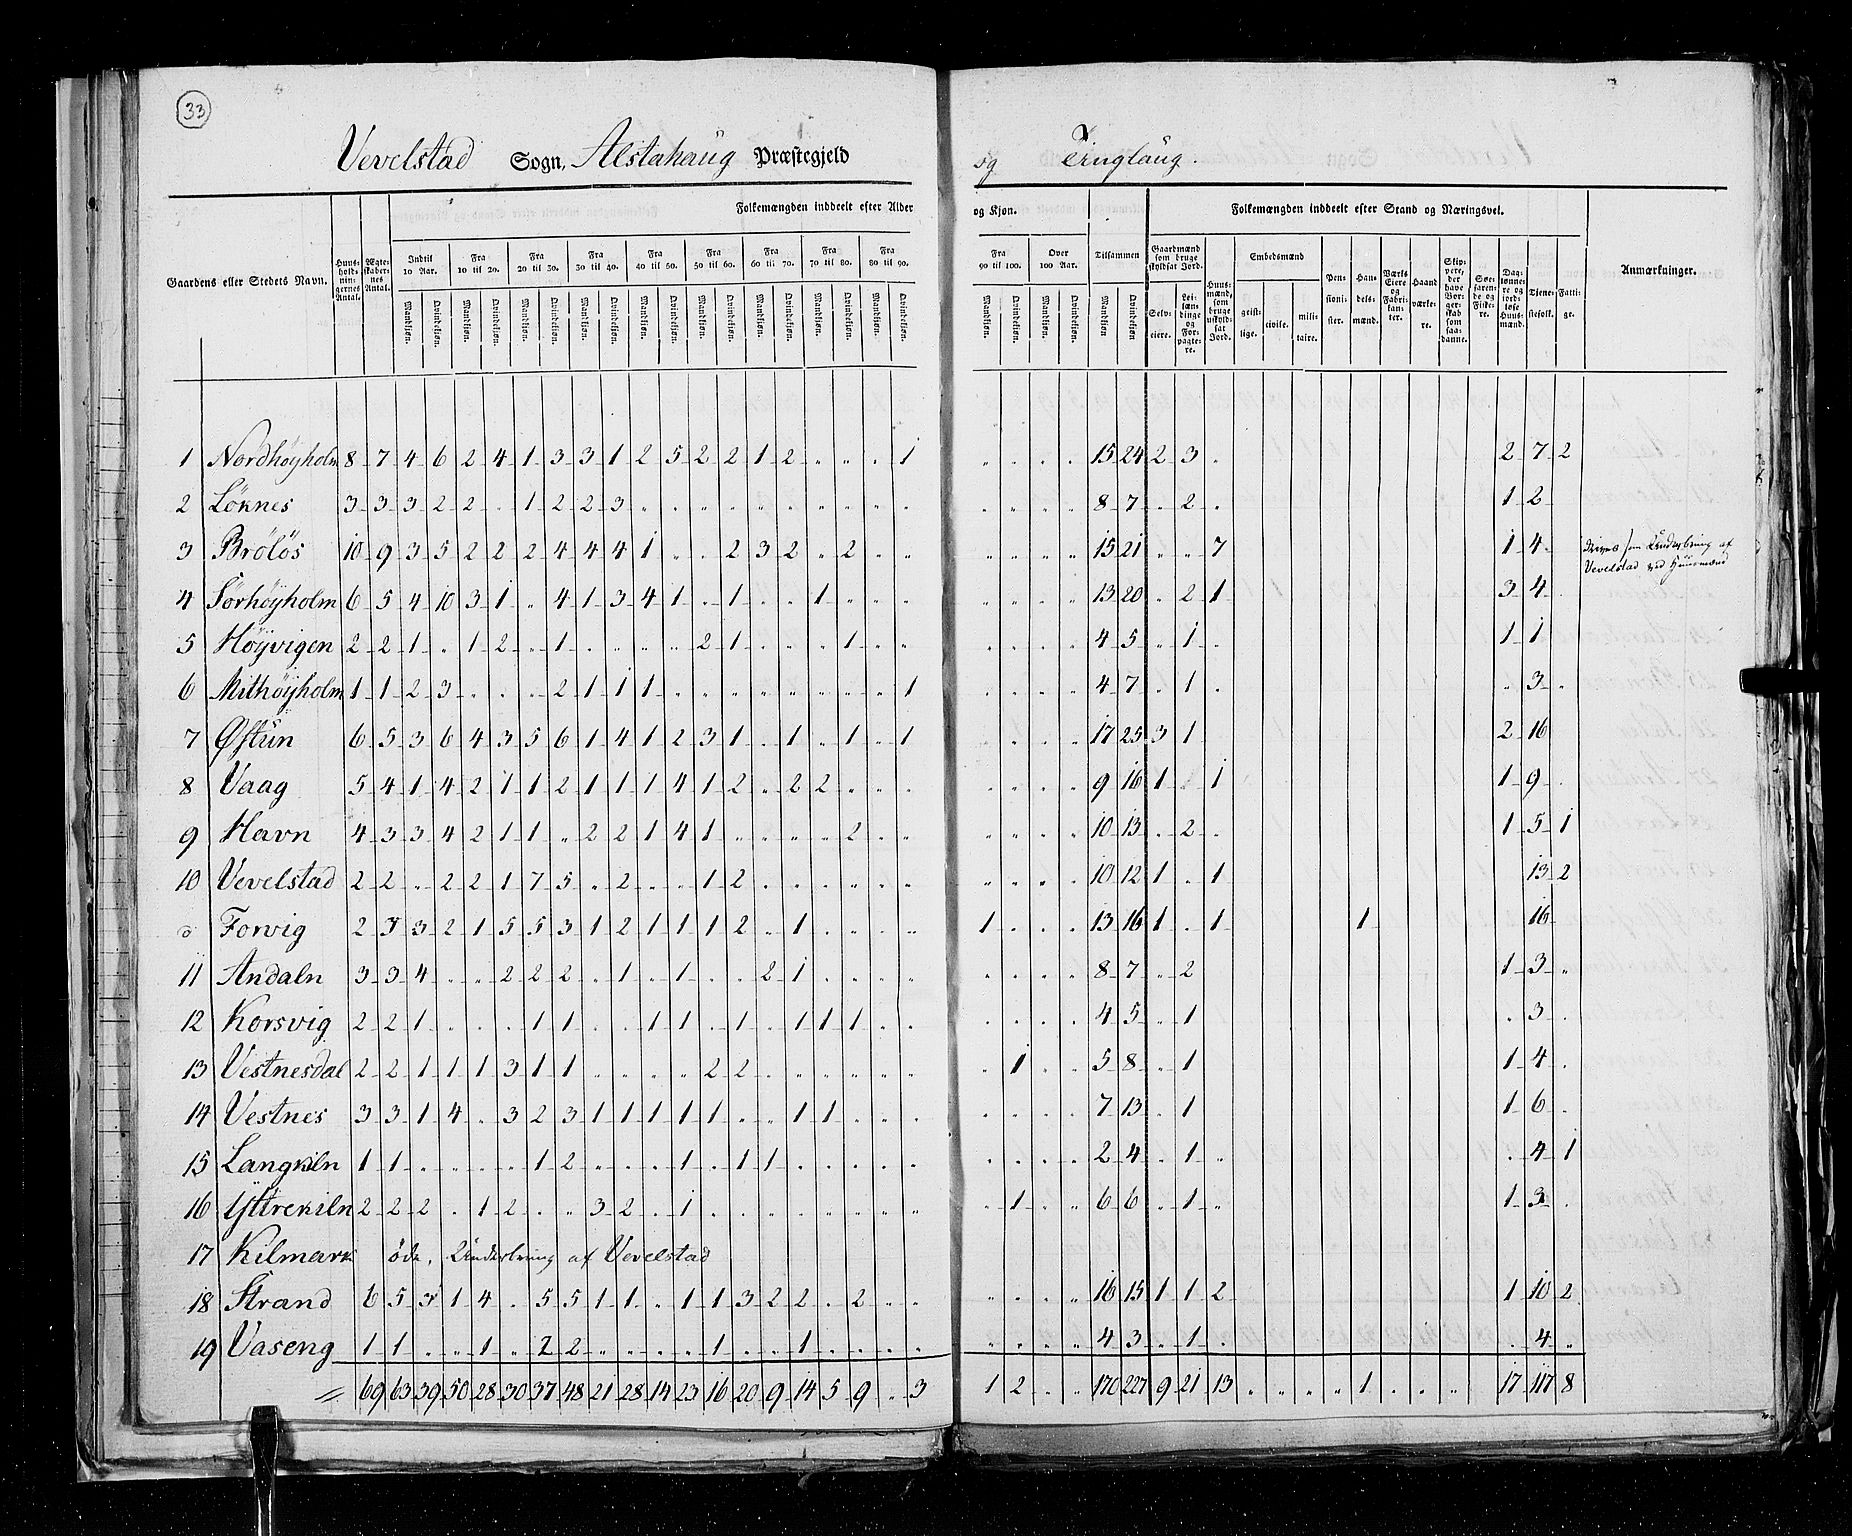 33
Vevelstad Sogn, Alstahaug Præstegjeld og Tinglaug.
Folkemængden inddeelt efter Alder og Kjøn. Folkemængden inddeelt efter Stand og Næringsvei.
Gaardens eller Stedets Navn. Huusholdningernes Antal. Ægteskabernes Antal. Indtil 10 Aar. Fra 10 til 20. Fra 20 til 30. Fra 30 til 40. Fra 40 til 50. Fra 50 til 60. Fra 60 til 70. Fra 70 til 80. Fra 80 til 90. Fra 90 til 100. Over 100 Aar. Tilsammen Gaardmænd som bruge skyldsat Jord. Huusmænd, som bruge uskyldsat Jord. Embedsmænd Pensionister. Handelsmænd. Værks Eiere og Fabrikanter. Haandværkere. Skippere, der have Borgerskab som saadanne. Søfarende og Fiskere. Daglønnere og jordløse Huusmænd. Tjenestefolk. Fattige. Anmærkninger.
Mandkjøn. Qvindekjøn. Mandkjøn. Qvindekjøn. Mandkjøn. Qvindekjøn. Mandkjøn. Qvindekjøn. Mandkjøn. Qvindekjøn. Mandkjøn. Qvindekjøn. Mandkjøn. Qvindekjøn. Mandkjøn. Qvindekjøn. Mandkjøn. Qvindekjøn. Mandkjøn. Qvindekjøn. Mandkjøn. Qvindekjøn. Mandkjøn Qvindekjøn. Selveiere. Leilændinge og Forpagtere. geistlige. civile. militaire.
1 Nordhøyholm 8 7 4 6 2 4 1 3 3 1 2 5 2 2 1 2 " " " 1 " " " " 15 24 2 3 " 2 7 2
2 Løknes 3 3 3 2 2 " 1 2 2 3 " " " " " " " " " " " " " " 8 7 " 2 " 1 2
3 Brøløs 10 9 3 5 2 2 2 4 4 4 1 " " 2 3 2 " 2 " " " " " " 15 21 " " 7 1 4 " drives som Underbrug af
Vevelstad ved Huusmænd
4 Sørhøyholm 6 5 4 10 3 1 " 4 1 3 4 1 " 1 " " 1 " " " " " " " 13 20 " 2 1 3 4 "
5 Høyvigen 2 2 1 " 1 2 " 1 " " " " 2 1 " " " 1 " " " " " " 4 5 " 1 " 1 1
6 Mithøyholm 1 1 2 3 " " " 2 1 1 1 " " " " " " " " 1 " " " " 4 7 " 1 " " 3 "
7 Østun 6 5 3 6 4 3 5 6 1 4 1 2 3 1 " 1 " 1 " 1 " " " " 17 25 3 1 2 16
8 Vaag 5 4 1 4 2 1 1 2 1 1 1 4 1 2 " 2 2 " " " " " " " 9 16 1 1 1 9 "
9 Havn 4 3 3 4 2 1 1 " 2 2 1 4 1 " " " " 2 " " " " " " 10 13 " 2 " 1 5 1
10 Vevelstad 2 2 " 2 2 1 7 5 " 2 " " 1 2 " " " " " " " " " " 10 12 1 " 1 13 2
Forvig 2 3 3 2 1 5 5 3 1 2 1 1 1 2 " 1 " " " " 1 " " " 13 16 1 " 1 1 16
11 Andaln 3 3 4 " " 2 2 2 " 1 " 1 " " 2 1 " " " " " " " " 8 7 " 2 1 3 "
12 Korsvig 2 2 1 " " " 1 1 " " 1 1 " 1 " 1 1 1 " " " " " " 4 5 " 1 " 3 "
13 Vestnesdal 2 2 1 1 1 3 1 1 " " " " 2 2 " " " " " " " 1 " " 5 8 " 1 1 4 "
14 Vestnes 3 3 1 4 " 3 2 3 1 1 1 1 1 " " 1 1 " " " " " " " 7 13 " 1 1 6 "
15 Langkiln 1 1 " " " " 1 2 " " " 1 " 1 1 " " " " " " " " " 2 4 " 1 " " 4 1
16 Yttrekiln 2 2 2 " 1 2 " " 3 2 " 1 " " " " " " " " " 1 " " 6 6 " 1 " 1 3 "
17 Kilmark øde, Underbrug af Vevelstad
18 Strand 6 5 3 1 4 " 5 5 1 1 " 1 1 3 2 2 " 2 " " " " " " 16 15 1 1 2 1 10 2
19 Vaseng 1 1 " " 1 " 2 2 " " " " 1 " " 1 " " " " " " " " 4 3 " 1 " " 4 "
= 69 63 39 50 28 30 37 48 21 28 14 23 16 20 9 14 5 9 " 3 1 2 " " 170 227 9 21 13 " " " " 1 " " " 17 117 8